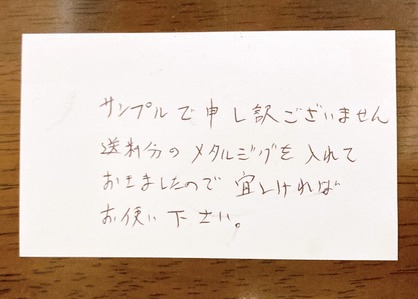 サンプルで申し訳ございません
送料分のメタルジグを入れて
おきましたので宜しければ
お使い下さい。